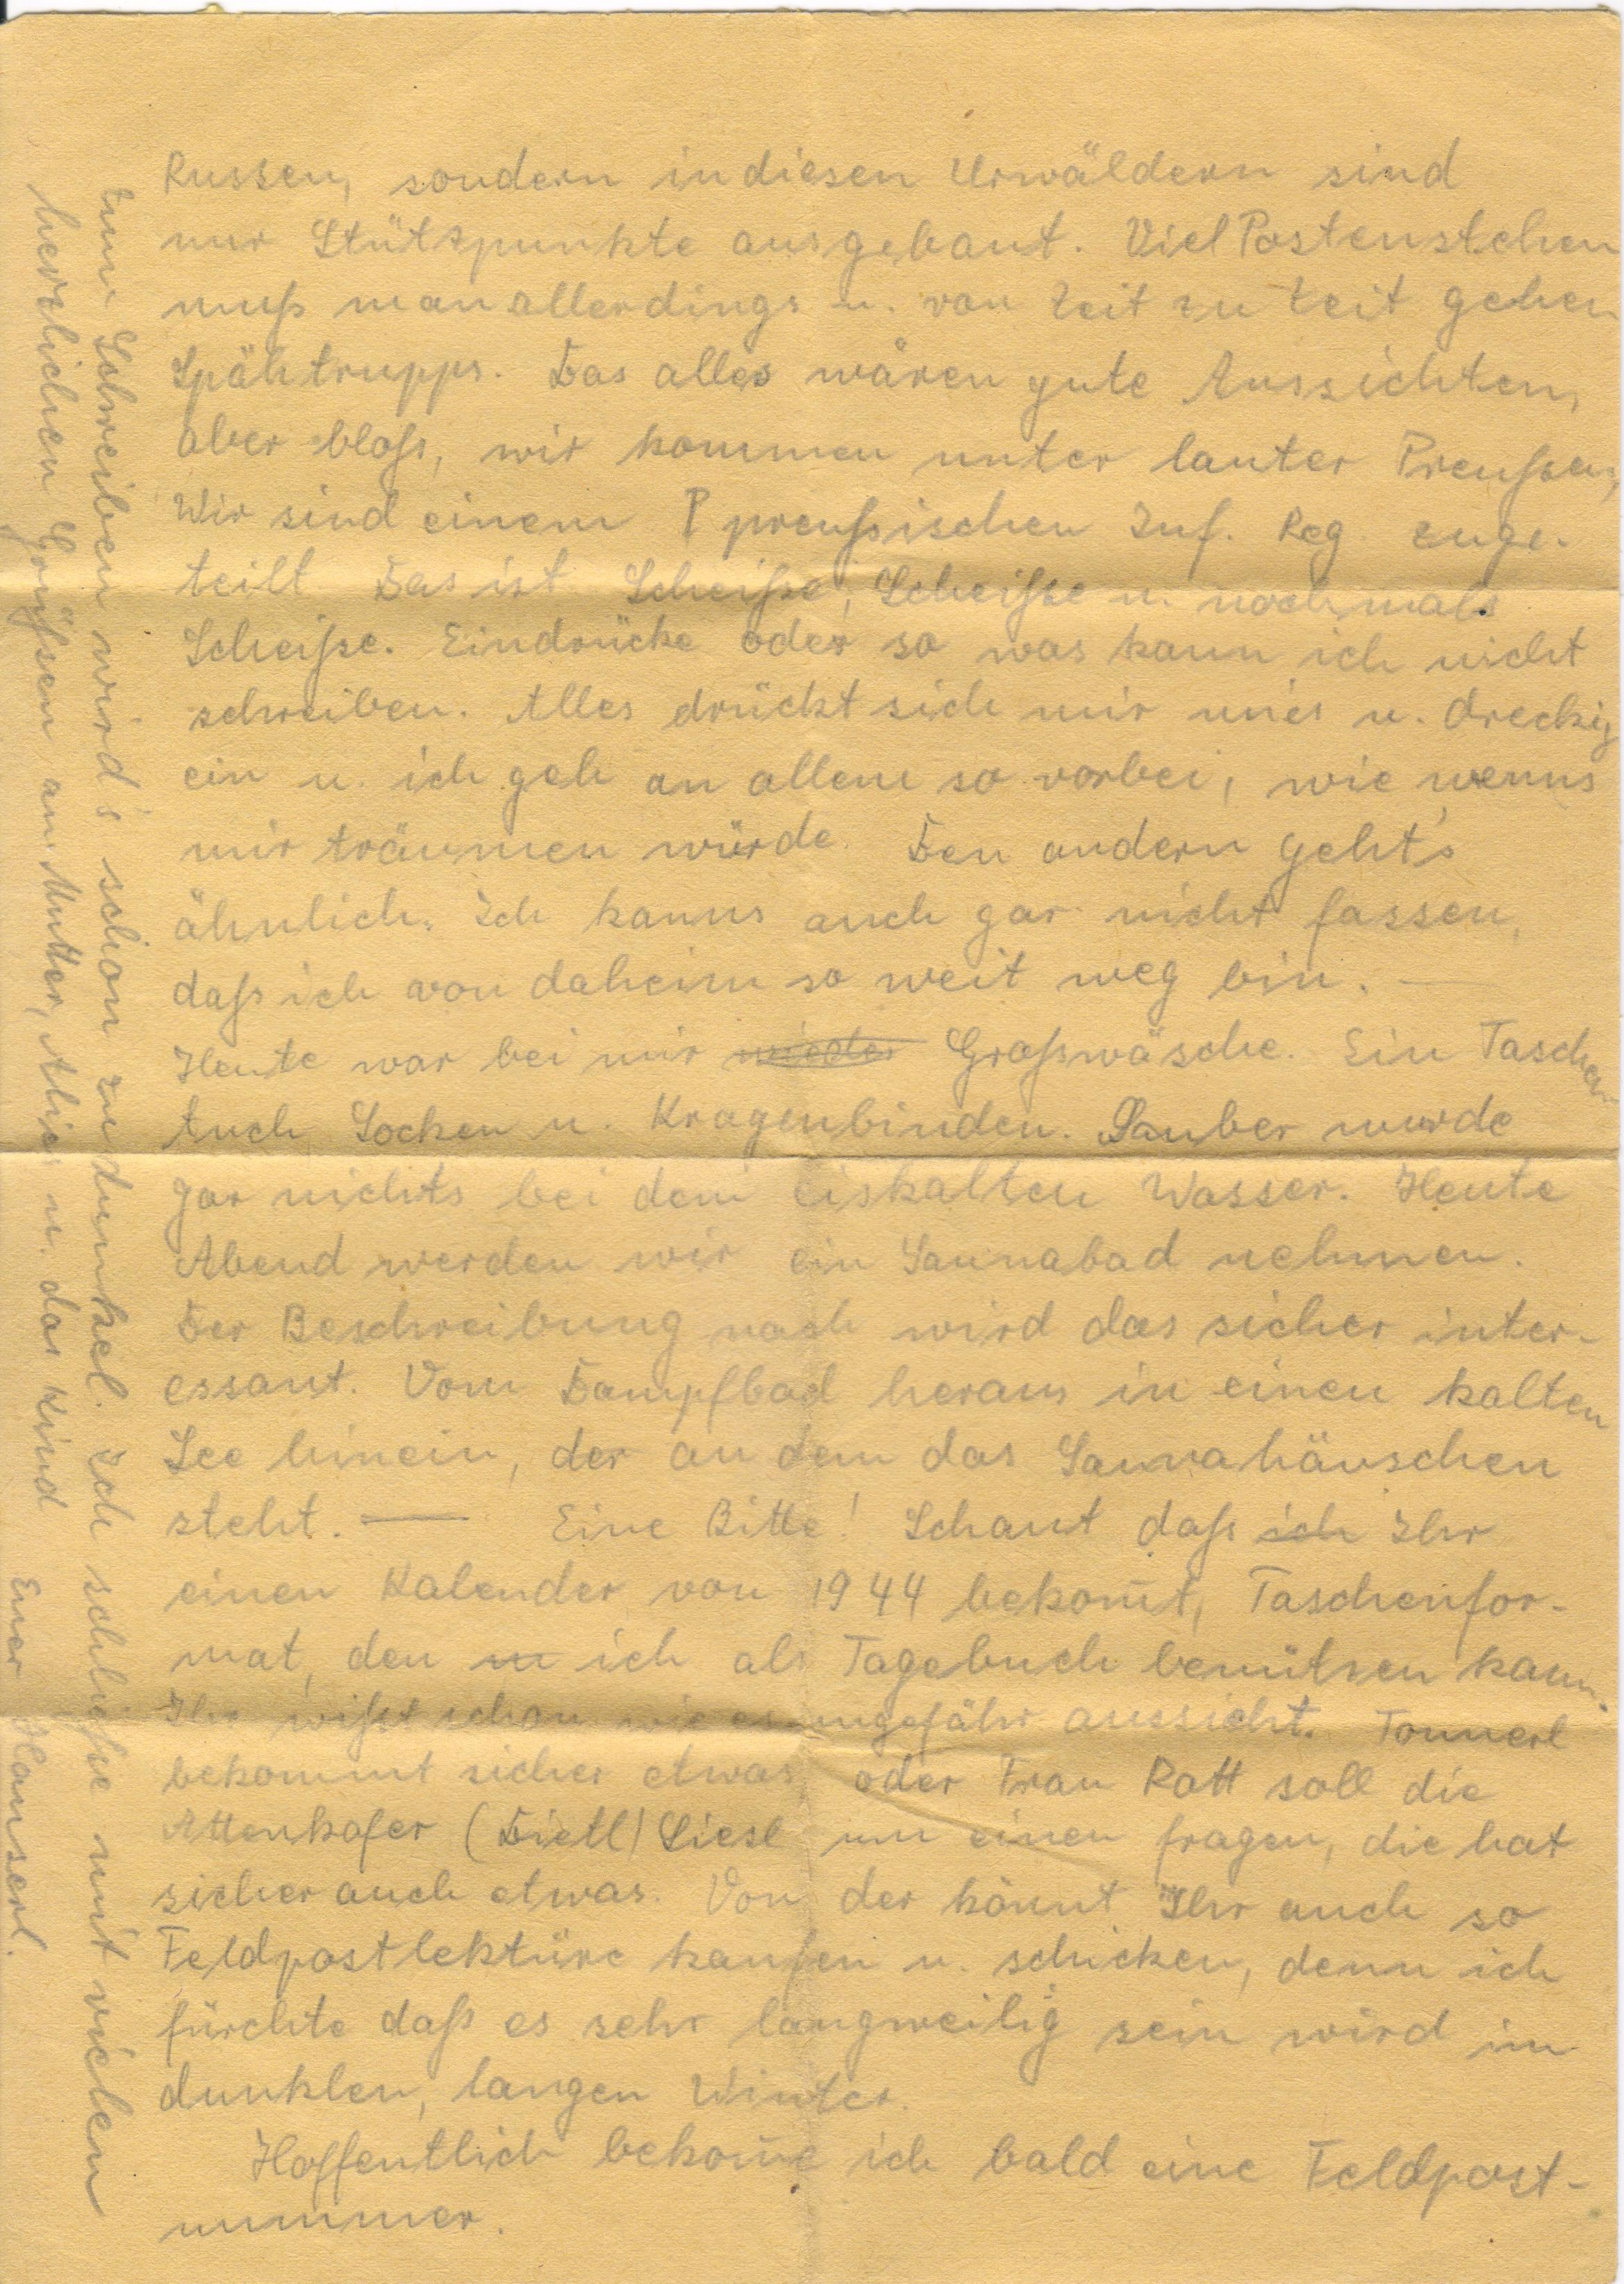 Russen, sondern in diesen Urwäldern sind
nur Stützpunkte ausgebaut. Viel Postenstehen
muß man allerdings u. von Zeit zu Zeit gehen
Spähtrupps. Das alles wären gute Aussichten,
aber bloß, wir kommen unter lauter Preußen,
Wir sind einem P preußischen Inf. Reg. enge-
teilt Das ist Scheiße, Scheiße u. nochmals
Scheiße. Eindrücke oder so was kann ich nicht
schreiben. Alles drückt sich mir mies u. dreckig
ein u. ich geh an allem so vorbei, wie wenns
mir träumen würde. Den andern geht's
ähnlich. Ich kanns auch gar nicht fassen,
daß ich von daheim so weit weg bin. —
Heute war bei mir wieder Großwäsche. Ein Taschen
tuch Socken u. Kragenbinden. Sauber wurde
gar nichts bei dem eiskalten Wasser. Heute
Abend werden wir ein Saunabad nehmen.
Der Beschreibung nach wird das sicher inter-
essant. Vom Dampfbad heraus in einen kalten
See hinein, der an dem das Saunahäuschen
steht. — Eine Bitte! Schaut daß ich Ihr
einen Kalender von 1944 bekom̄t, Taschenfor-
mat, den m ich als Tagebuch benützen kann.
Ihr wißt schon wie es ungefähr aussieht. Tonnerl
bekommt sicher etwas oder Frau Rott soll die
Attenkofer (Dietl) Liesl um einen fragen, die hat
sicher auch etwas. Von der könnt Ihr auch so
Feldpostlektüre kaufen u. schicken, denn ich
fürchte daß es sehr langweilig sein wird im
dunklen, langen Winter.
Hoffentlich bekom̄e ich bald eine Feldpost-
nummer.
Zum Schreiben wird's schon zu dunkel. Ich schließe mit vielen
herzlichen Grüßen an Mutter, u. das Kind
Euer Hanserl.